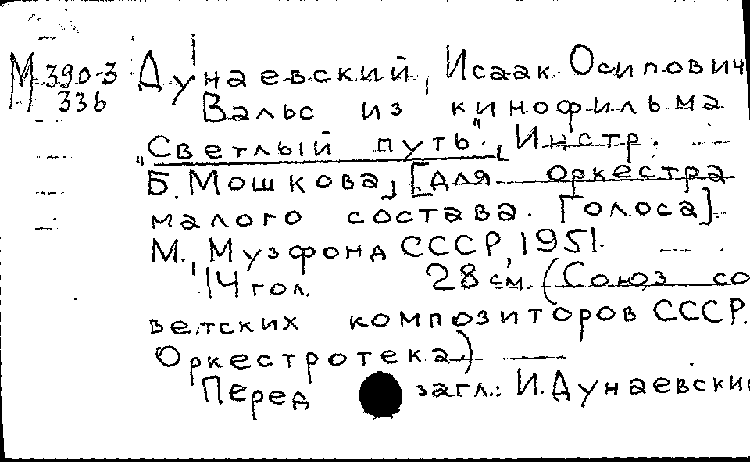 М 390-3 Дунаевский, Исаак Осипович
336 Вальс из кинофильма
"Светлый путь", Инстр.
Б. Мошкова, [для оркестра
малого состава. Голоса].
М., Музфонд СССР, 1951.
14 гол. 28 см. (Союз со
ветских композиторов СССР.
Оркестротека)
Перед загл.: И. Дунаевский